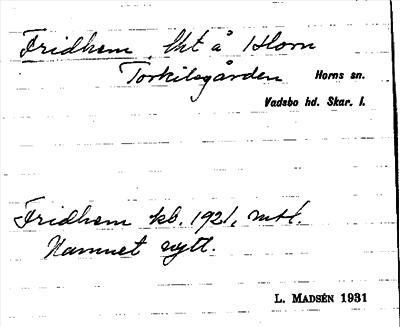 Fridhem, lht å Horn
Torkilsgården Horns sn.
Vadsbo hd. Skar. l.
Fridhem kb. 1921, mtl.
Namnet nytt.
L. MADSÉN 1931